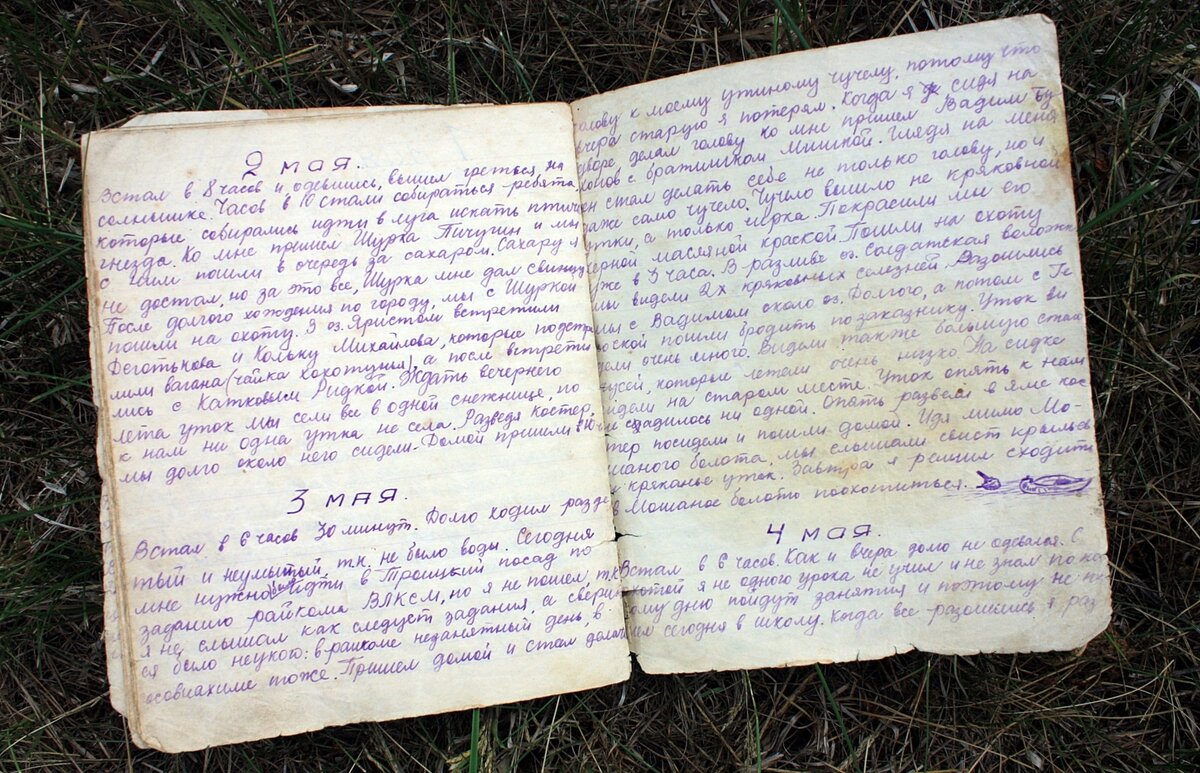 2 МАЯ.
Встал в 8 часов и одевшись, вышел греться на
солнышке. Часов в 10 стали собираться ребята,
которые собирались идти в луга искать птичьи
гнезда. Ко мне пришел Шурка Пичугин и мы
с ним пошли в очередь за сахаром. Сахару я
не достал, но за это все, Шурка мне дал свинцу
После долгого хождения по городу, мы с Шуркой
пошли на охоту. У оз. Яристом встретили
Деготькова и Кольку Михайлова, которые подстре
лили вагана (чайка хохотунья), а после встрети
лись с Катковым Ридкой. Ждать вечернего
лета уток мы сели все в одной снежнице, но
к нам ни одна утка не села. Разведя костер,
мы долго около него сидели. Домой пришли в 10 ч
3 МАЯ.
Встал в 6 часов 30 минут. Долго ходил разде
тый и неумытый, т.к. не было воды. Сегодня
мне нужно было идти в Троицкий посад по
заданию райкома ВЛКСМ, но я не пошел, т.к.
я не слышал как следует задания, а сверит
ся было неукого: в райкоме незанятный день, в
осовиахиме тоже. Пришел домой и стал делать
голову к моему утиному чучелу, потому что
вчера старую я потерял. Когда я сидя на
дворе, делал голову ко мне пришел Вадим Бу
с братишком Мишкой. Глядя на меня
он стал делать себе не только голову, но и
даже само чучело. Чучело вышло не кряковной
утки, а только чирка. Покрасили мы его
черной масляной краской. Пошли на охоту
уже в 3 часа. В разливе оз. Солдатская воложка
мы видели 2х кряковных селезней. Разошлись
мы с Вадимом около оз. Долгого, а потом с Ге
ской пошли бродить по заказнику. Уток ви
дели очень много. Видели также большую стаю
гусей, которые летели очень низко. На сидке
сидели на старом месте. Уток опять к нам
не садилось ни одной. Опять развели в яме кос
тер посидели и пошли домой. Идя мимо Мо-
шаного болота, мы слышали свист крыльев
и кряканье уток. Завтра я решил сходить
в Мошаное болото поохотиться.
4 МАЯ.
Встал в 6 часов. Как и вчера долго не одевался. С
охотой я не одного урока не учил и не знал по ка
кому дню пойдут занятия и поэтому не по
шел сегодня в школу. Когда все разошлись я раз